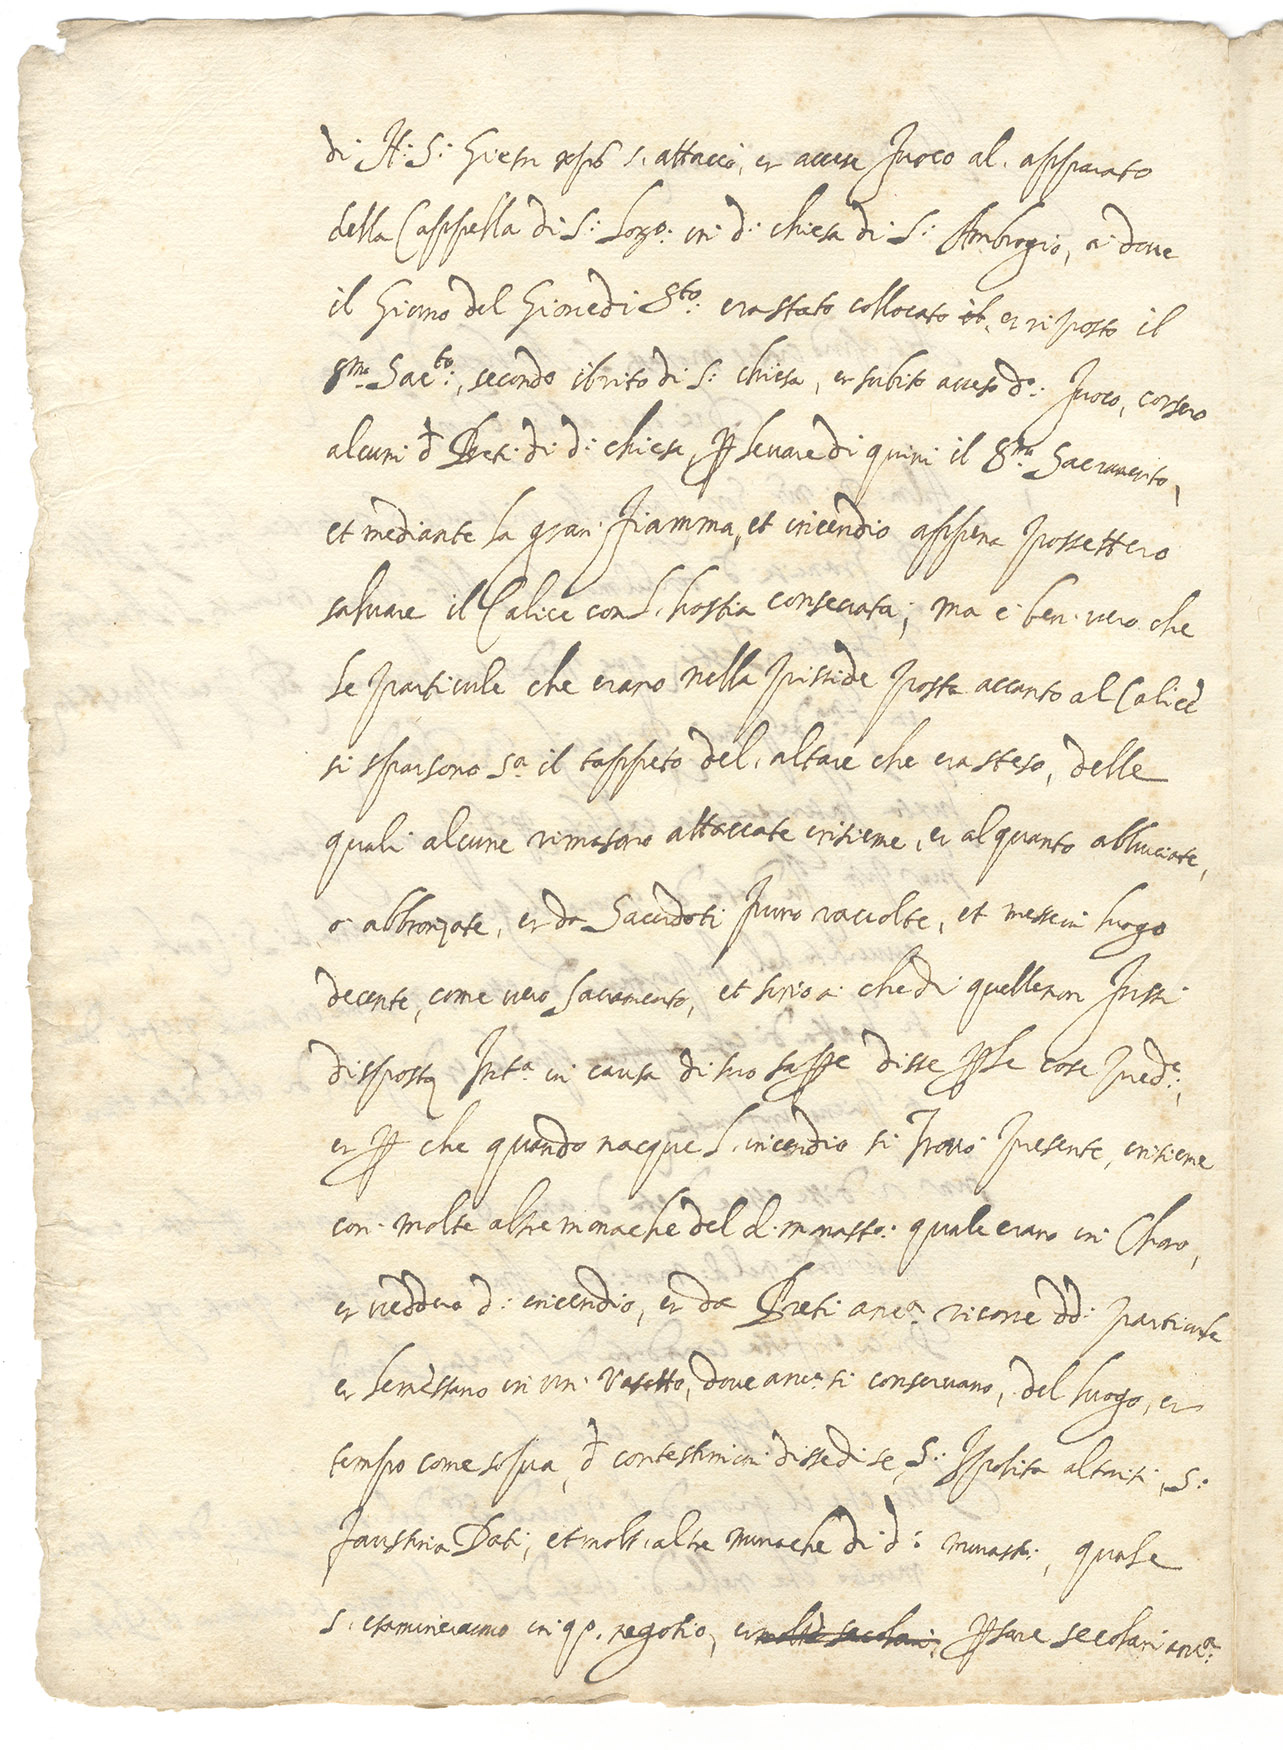 di N: S: Giesu xpo s. attaccò, et accese fuoco al. apparato
della Cappella di S: Lorzo: in d: chiesa di S: Ambrogio, a dove
il Giorno del Giovedi Sto: era stato collocato il. et riposto il
Smo Sacto:, secondo il rito di S: chiesa, et subito acceso do: fuoco, corsero
alcuni d Preti di d: chiesa, p levare di quivi il Smo Sacramento,
et mediante la gran fiamma, et incendio appena possettero
salvare il Calice con l. hostia consecrata, ma è ben vero che
le particule che erano nella pisside posta accanto al Calice
si sparsono sa il tappeto del. altare che era steso, delle
quali alcune rimasono attaccate insieme, et alquanto abbruciate,
o abbronzate, et da Sacerdoti furno raccolte, et messe in luogo
decente, come vero Sacramento, et sino a che di quelle non fussi
disposto Inta in causa di suo sappe disse p le cose prede:,
et p che quando nacque l. incendio si trovò presente, insieme
con molte altre monache del d. monasto: quale erano in Choro,
et veddero d: incendio, et da Preti anca ricorre dd: particule
et le messano in un vasetto, dove anca si conservano, del luogo, et
tempo come sopra, d contestimini disse di se, S: Ipolita altoviti, S:
faustina Dati, et molt. altre monache di d: monasto:, quale
s. esamineranno in qo. negotio, et molti secolari, p sare secolari anca: